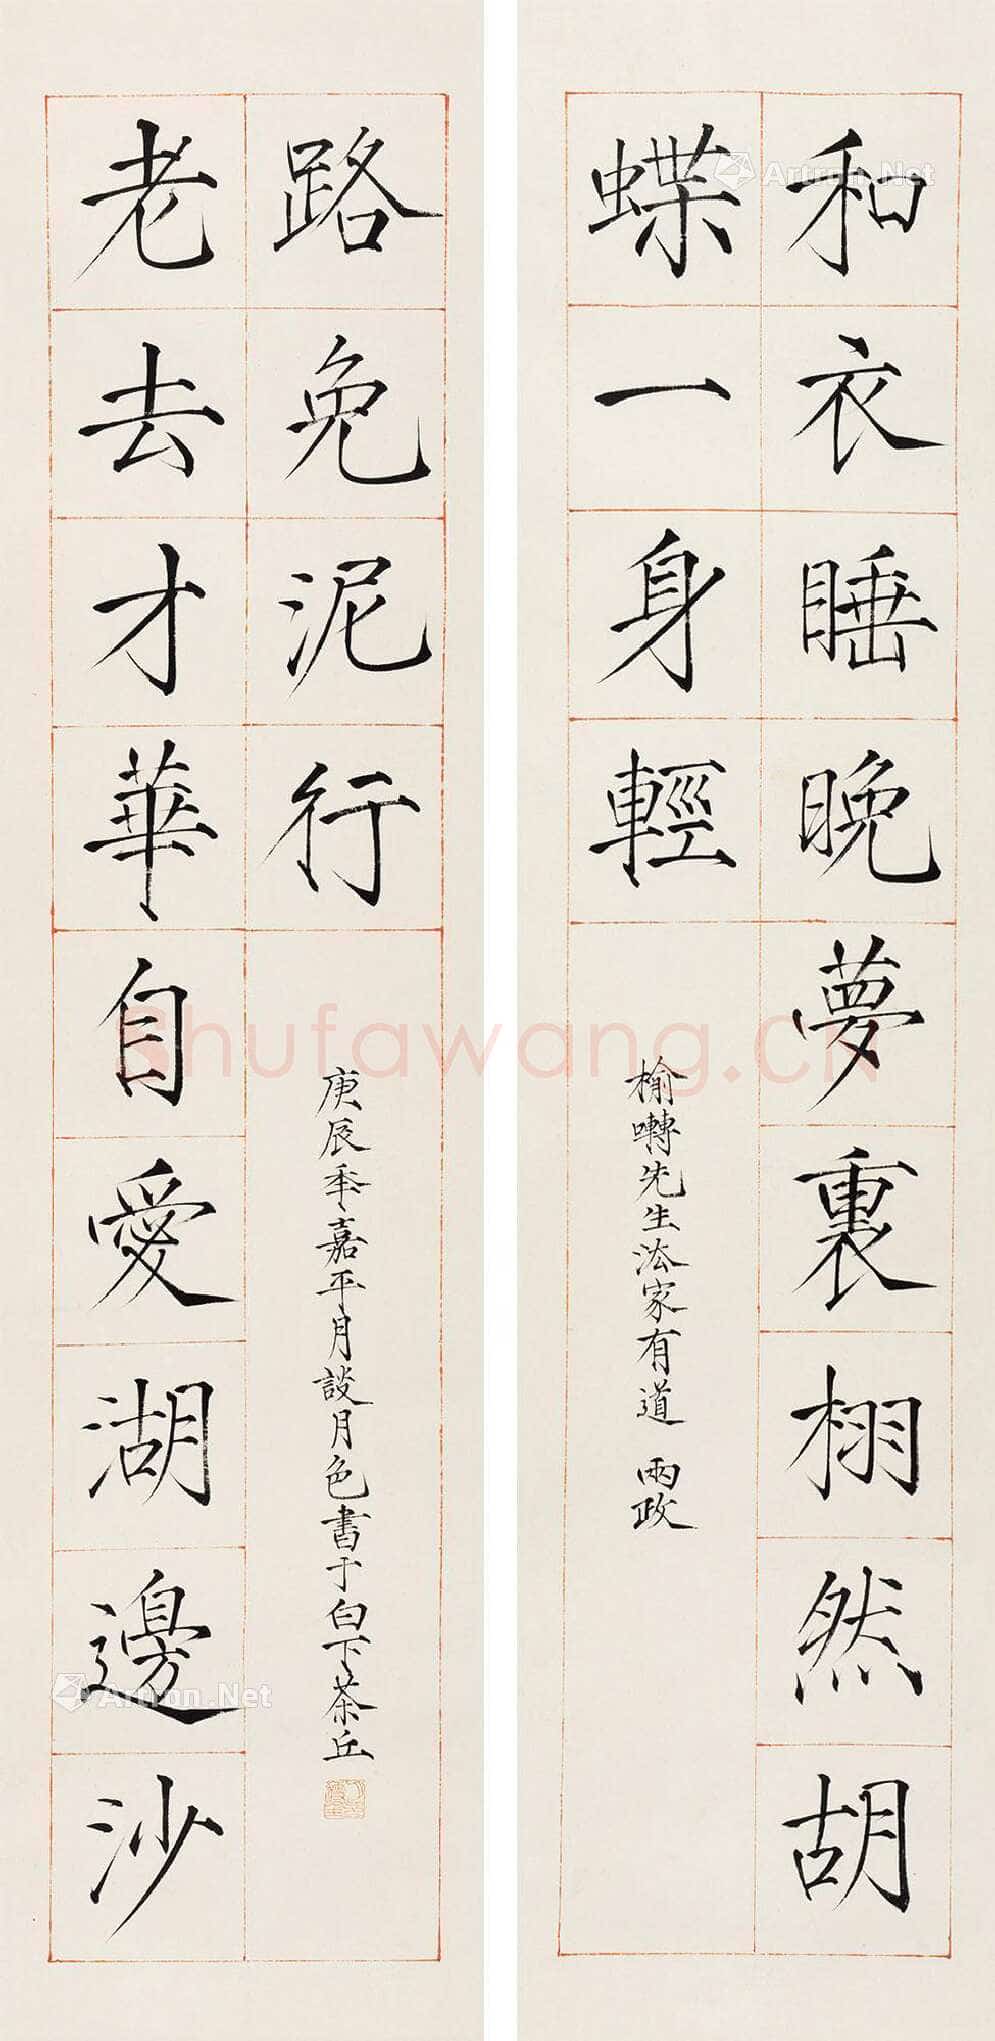 和衣睡晚夢裏栩然胡
蝶一身輕
榆囀先生法家有道 兩政
老去才華自愛湖邊沙
路免泥行
庚辰秊嘉平月談月色書于白下茶丘
Artron.Net
Shufawang.CN
Artron.Net